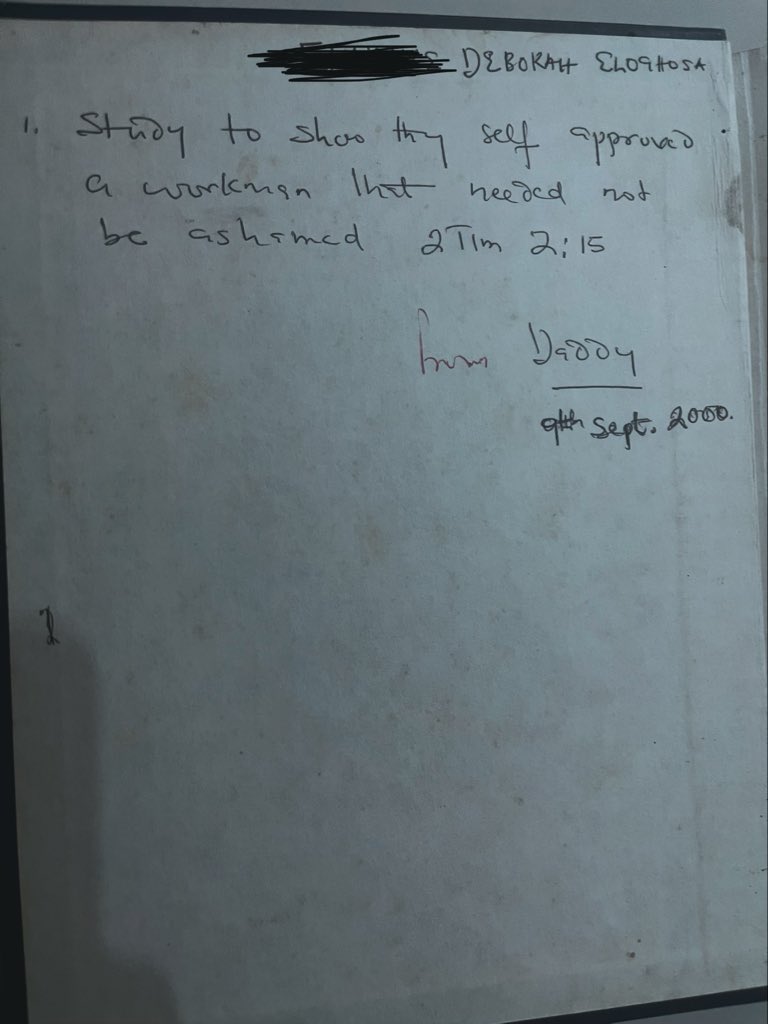 DEBORAH ELOGHOSA
1. Study to shoo thy self approved
a workman that needed not
be ashamed 2Tim 2:15
from Daddy
9th Sept. 2000.